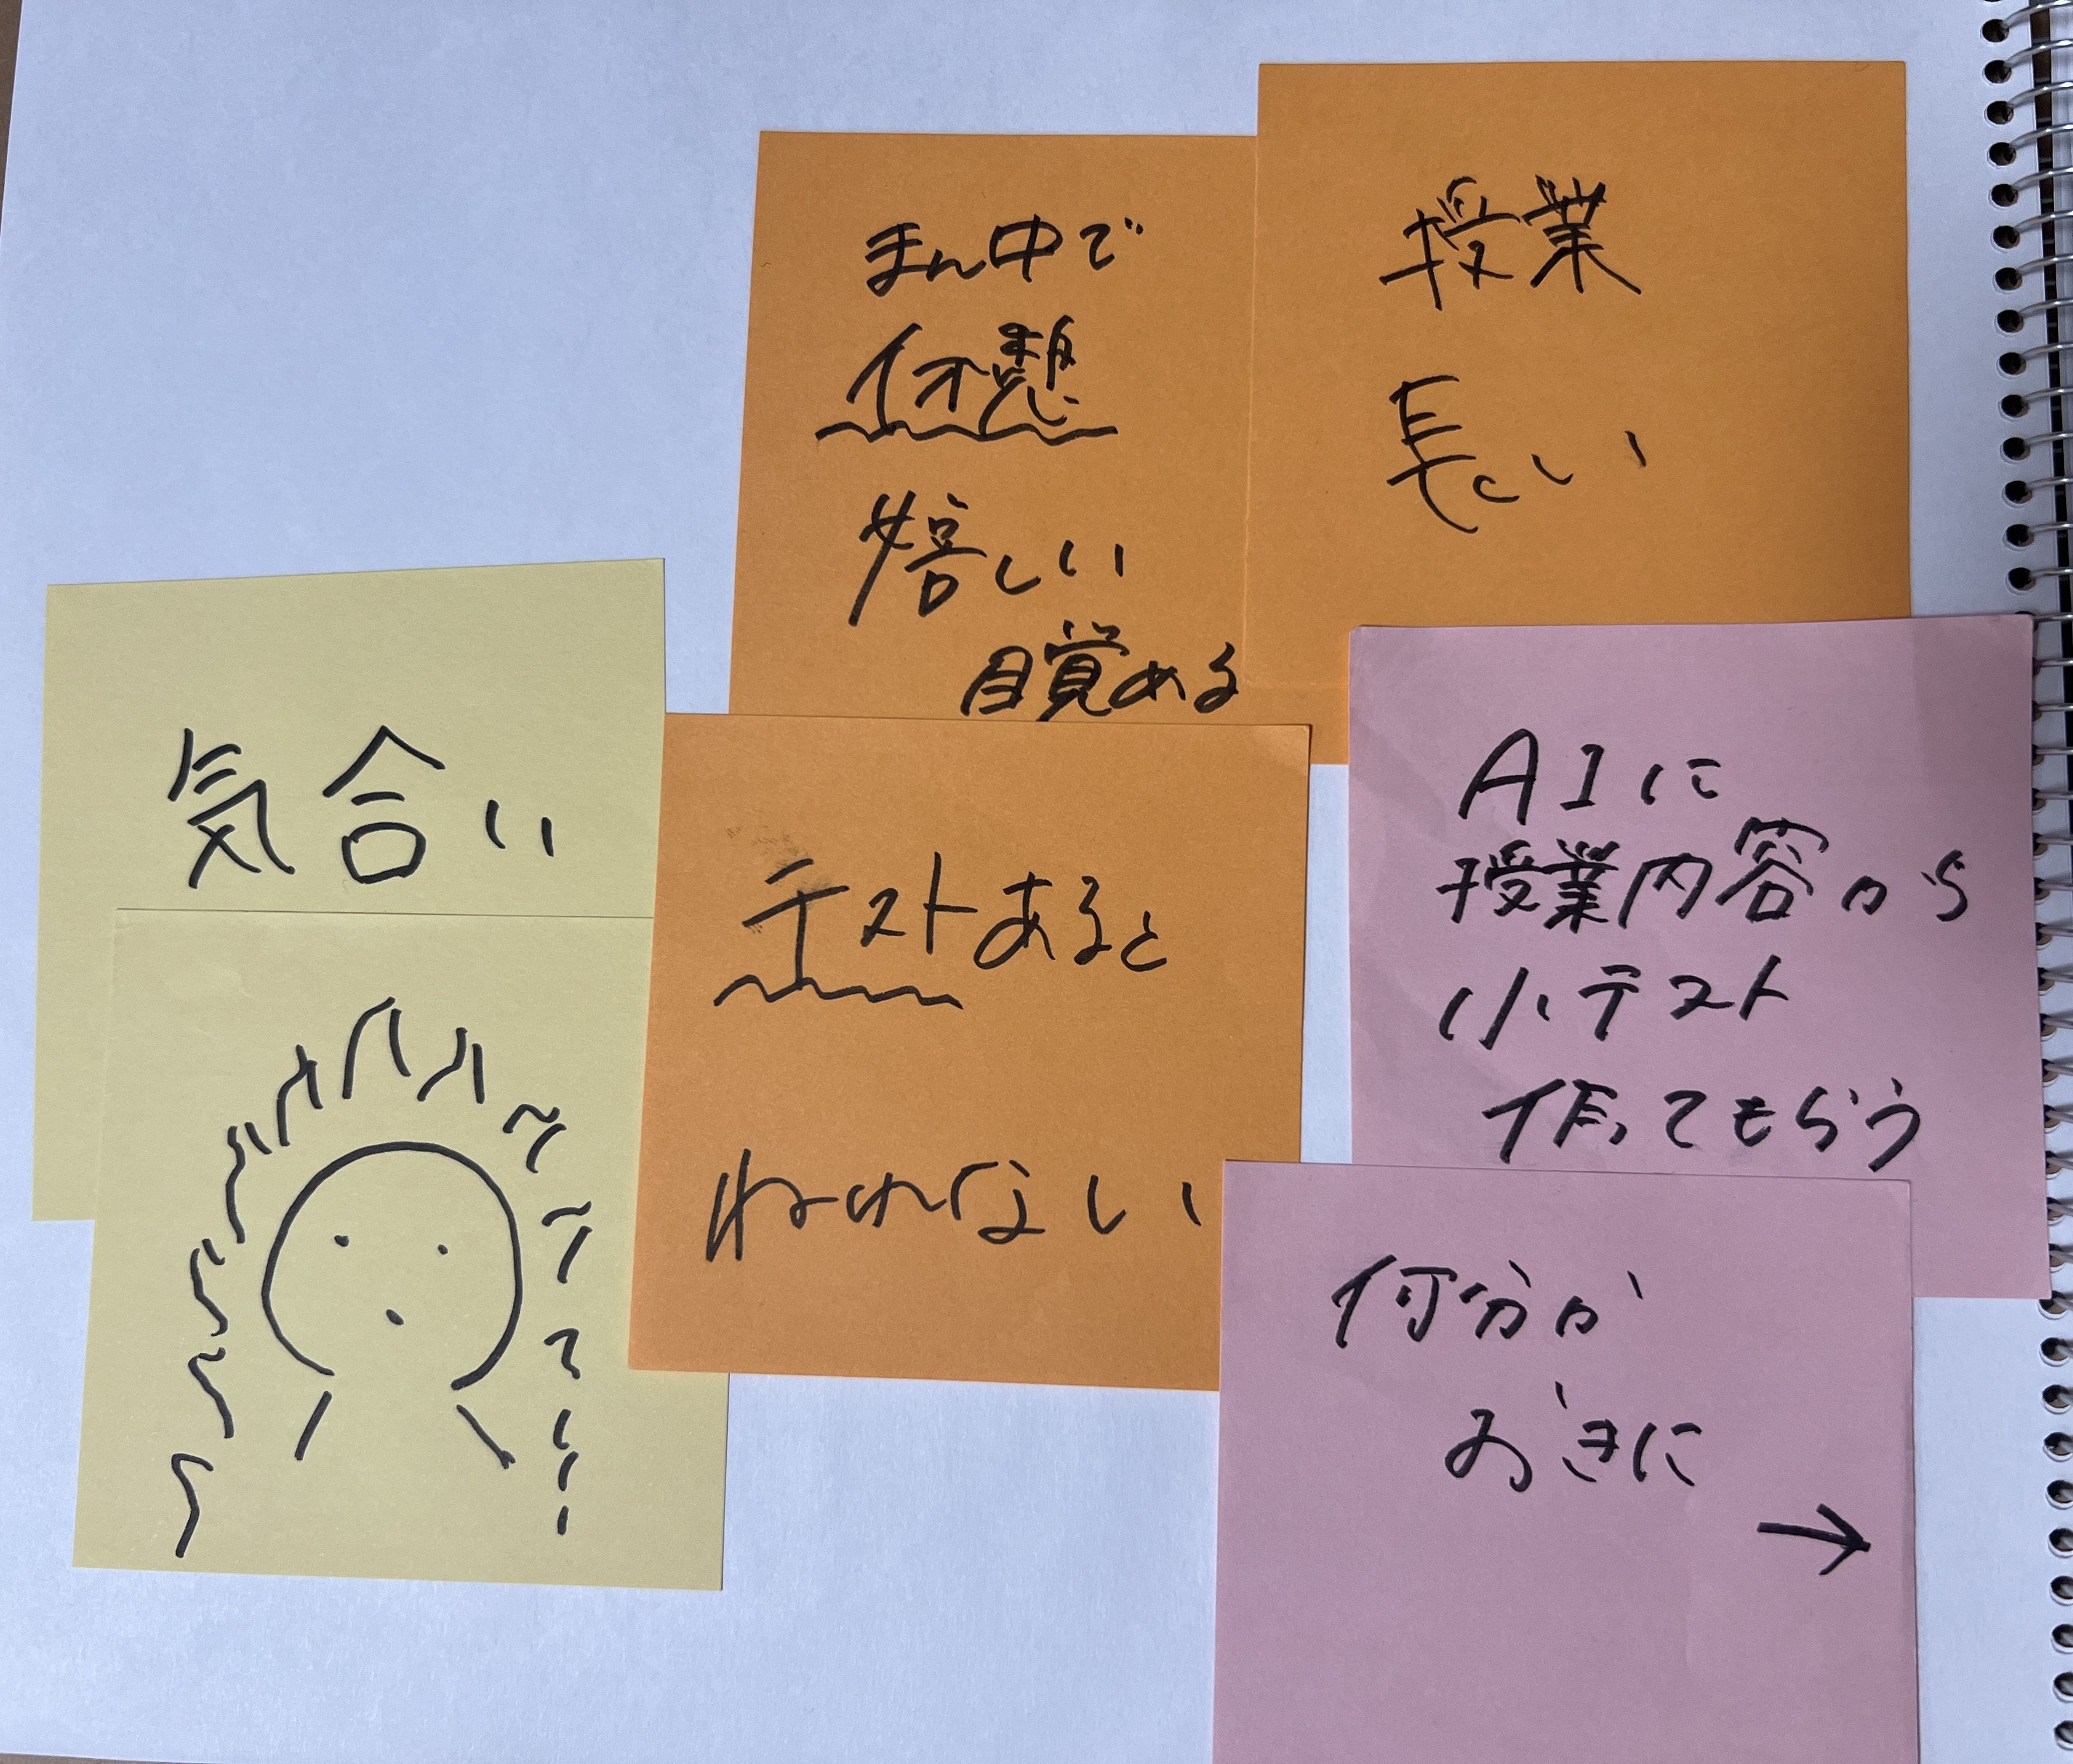 授業
長い
まん中で
休憩
嬉しい
目覚める
気合い
テストあると
ねれない
AIに
授業内容から
小テスト
作ってもらう
何分か
おきに
→